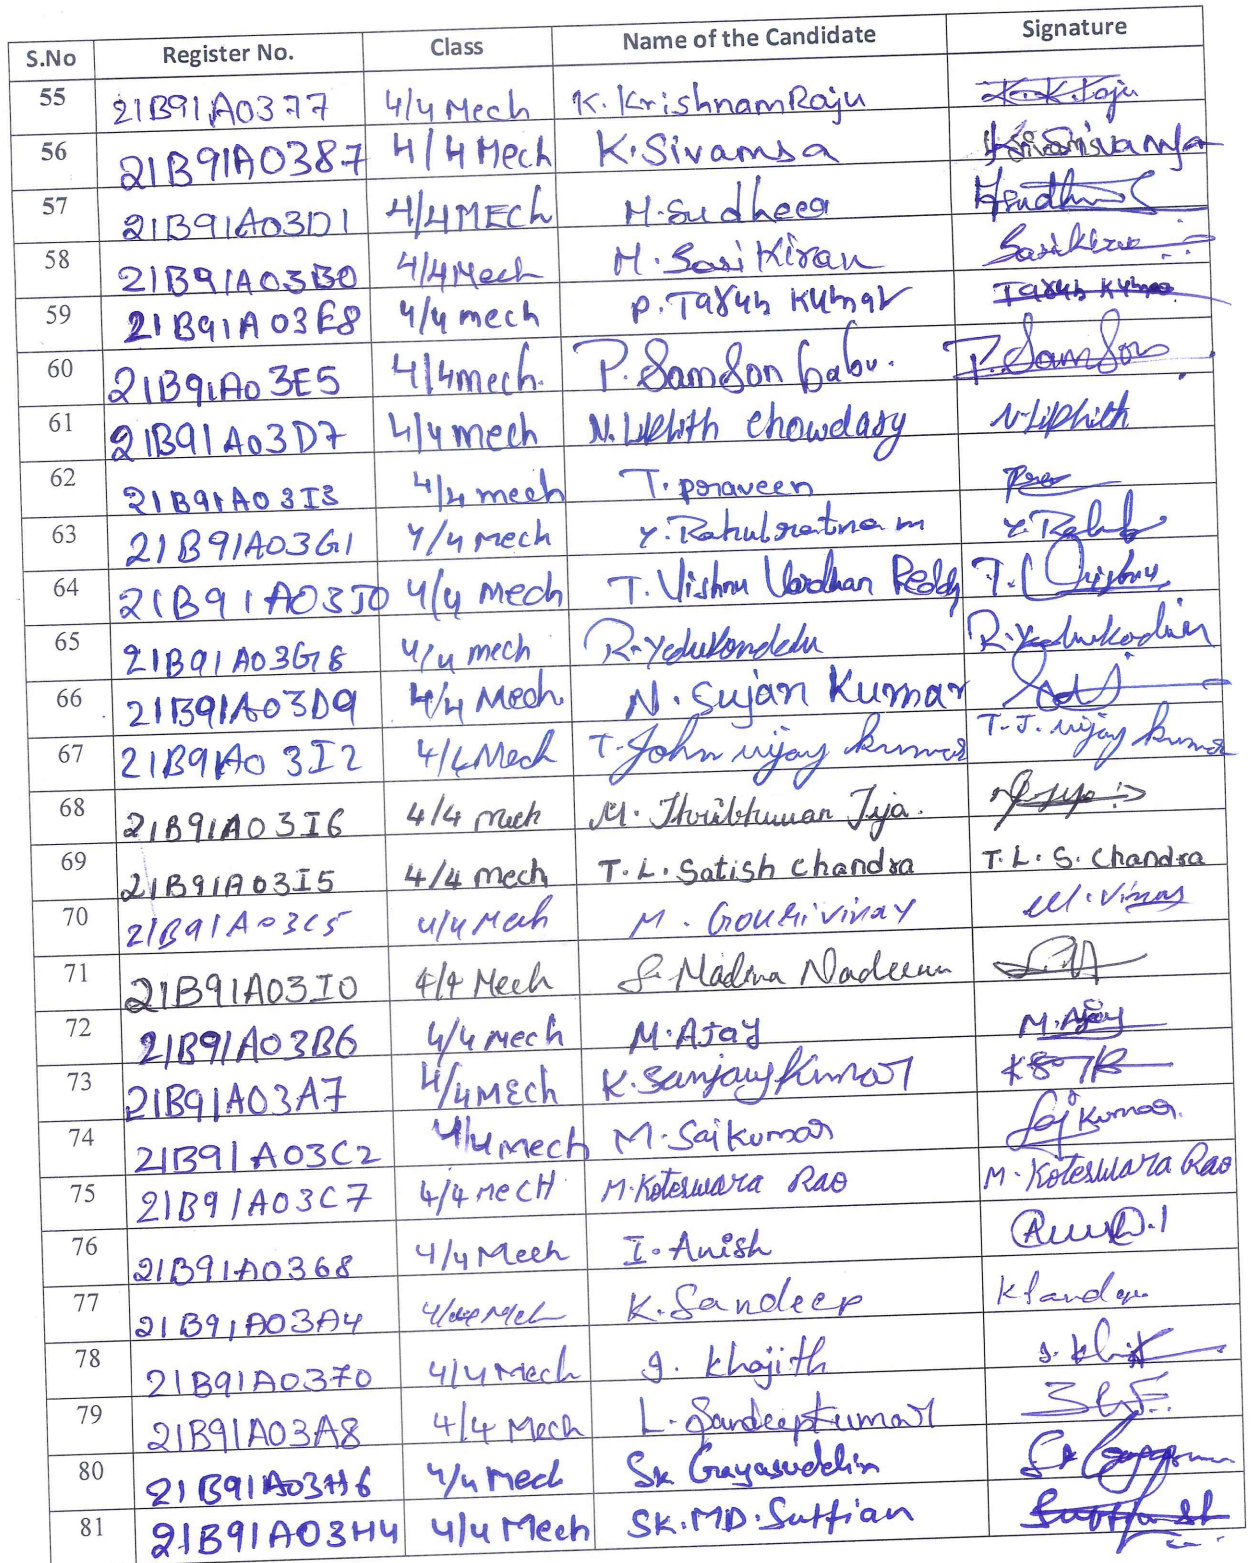 S.No Register No. Class Name of the Candidate Signature
55 21B91A0377 4/4 Mech K. Krishnam Raju K.K.Raju
56 21B91A0387 4/4 Mech K.Sivamsa
57 21B91A03D1 4/4 MECh M.Sudheer
58 21B91A03B0 4/4 Mech M. Sasi Kiran Sasikiran
59 21B91A03E8 4/4 mech P. Tarun Kumar Tarun Kumar
60 21B91A03E5 4/4 mech. P. Samson babu. P. Samson
61 21B91A03D7 4/4 mech N. Likhith Chowdary N. Likhith
62 21B91A03I3 4/4 mech T. praveen
63 21B91A03G1 4/4 Mech Y. Rahulratnam Y. Rahul
64 21B91A03J0 4/4 Mech T. Vishnu Vardhan Reddy T. Vishnu
65 21B91A03G8 4/4 mech R. Yedukondalu
66 21B91A03D9 4/4 Mech. N. Sujan Kumar
67 21B91A03I2 4/4 Mech T. John vijay kumar T. J. vijay kumar
68 21B91A03I6 4/4 mech M. Thribhuvan Teja.
69 21B91A03I5 4/4 mech T. L. Satish Chandra T. L. S. Chandra
70 21B91A03C5 4/4 Mech M. Gouri vinay M. Vinay
71 21B91A03I0 4/4 Mech S. Madina Nadeem
72 21B91A03B6 4/4 Mech M. AJay M. Ajay
73 21B91A03A7 4/4 MEch K. Sanjay Kumar
74 21B91A03C2 4/4 mech M. Saikumar Saikumar.
75 21B91A03C7 4/4 mecH M. Koteswara Rao M. Koteswara Rao
76 21B91A0368 4/4 Mech I. Anish
77 21B91A03A4 4/4 Mech K. Sandeep K Sandeep
78 21B91A0370 4/4 Mech J. Khajith
79 21B91A03A8 4/4 Mech L. Sandeepkumar
80 21B91A03H6 4/4 Mech Sk Gayasuddin
81 21B91A03H4 4/4 Mech SK. MD. Suffian